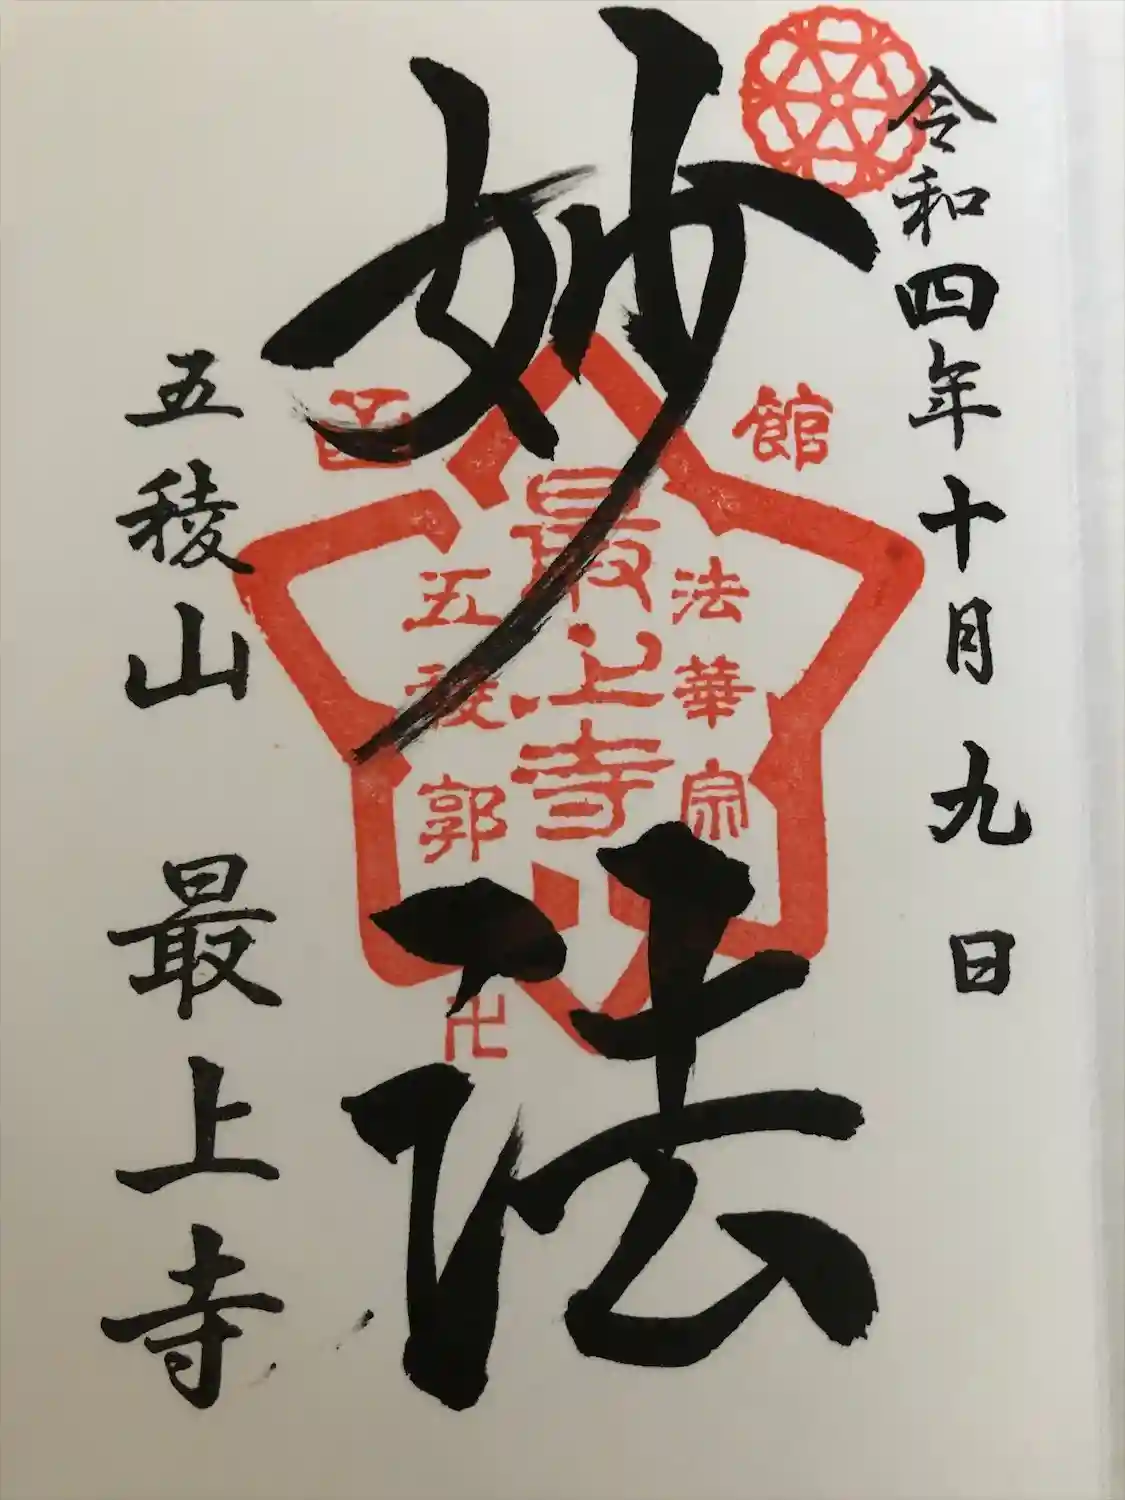 令和四年十月九日
妙法
函館
法華宗
最上寺
五稜郭
卍
五稜山 最上寺